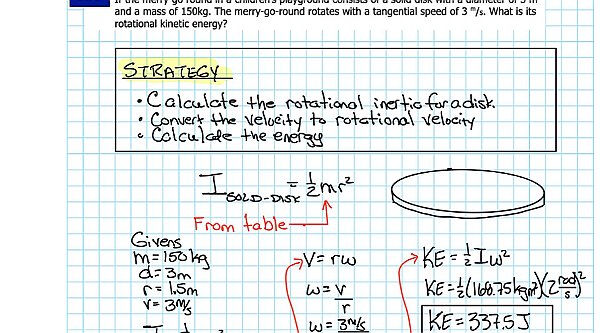 If the merry go round in a children's playground consists of a solid disk with a diameter of 3 m
and a mass of 150kg. The merry-go-round rotates with a tangential speed of 3 m/s. What is its
rotational kinetic energy?
STRATEGY
• Calculate the rotational inertia for a disk.
• Convert the velocity to rotational velocity
• Calculate the energy
I SOLID-DISK = 1/2 mr²
From table
Givens
m = 150 kg
d = 3m
r = 1.5m
v = 3 m/s
V = rω
ω = V/r
ω = 3 m/s
KE = 1/2 Iω²
KE = 1/2 (168.75 kgm²)(2 rad/s)²
KE = 337.5 J